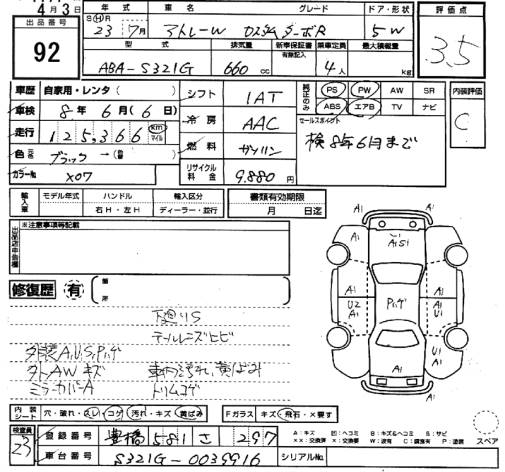 4月3日
出品番号
92
年式 車名 グレード ドア・形状
23年7月 アトレーW カスタムターボR 5W
型式 排気量 新車保証書 乗車定員 最大積載量
有無記入
ABA-S321G 660cc 4人 kg
評価点
3.5
車歴 自家用・レンタ シフト 1AT
車検 8年6月(6日) 冷房 AAC
走行 125,366 km マイル 燃料 ガソリン
色 元色 ブラック→
カラーNo. X07 リサイクル料金 9,880円
純正のみ PS PW AW SR
ABS エアB TV ナビ
セールスポイント
検8年6月まで
内装評価
C
輸入車 モデル年式 ハンドル 輸入区分 書類有効期限
右H・左H ディーラー・並行 月 日迄
出品店申告欄 ※注意事項等記載
修復歴 有 箇所
下廻りS
テールレンズヒビ
外装A,U,S,Pハゲ
外AWキズ 車内汚れ、黄ばみ
ミラーカバーA トリムコゲ
A1 A1
A1S1
A1 A1
U2 A1
Pハゲ
A1 A1
A1 U1
U1
A1
A1 A1
内装シート 穴・破れ・スレ コゲ 汚れ・キズ 黄ばみ Fガラス キズ 飛石・X要す
検査員 23
登録番号 豊橋 581 さ 297
車台番号 S321G-0039916 シリアルNo.
A:キズ U:ヘコミ B:キズ&ヘコミ S:サビ
XX:交換済 X:要交換 W:波有 C:腐食有 P:塗装
スペア